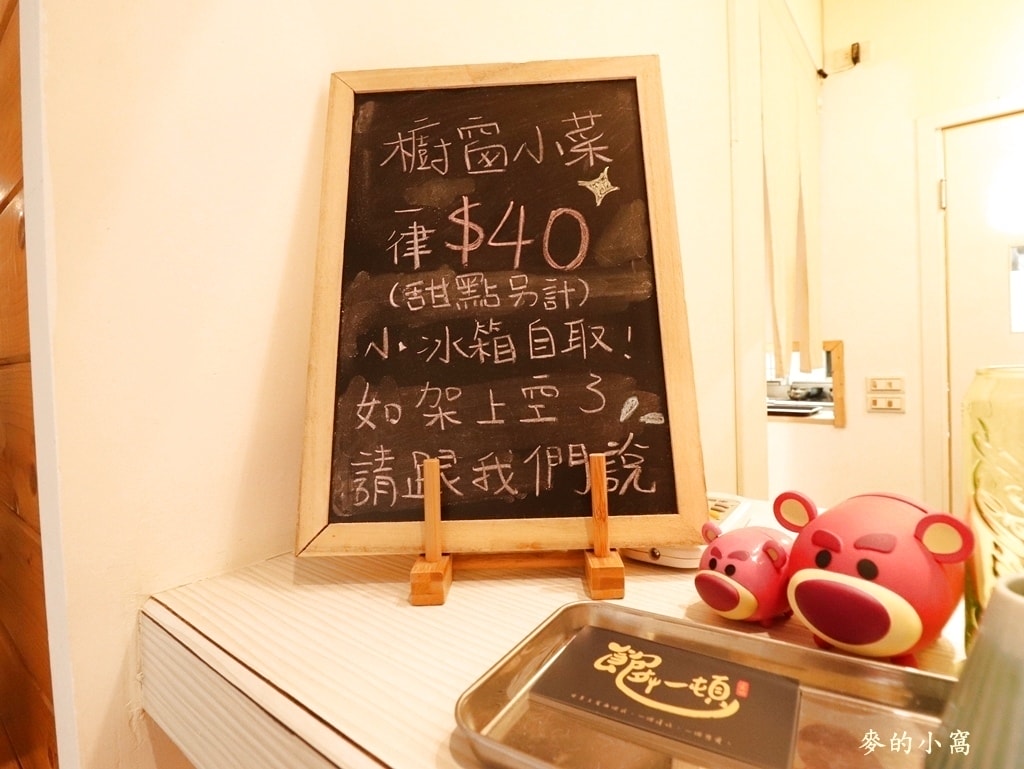 櫥窗小菜
一律$40
(甜點另計)
小冰箱自取!
如架上空了
請跟我們說
飽我一頓
麥的小窩